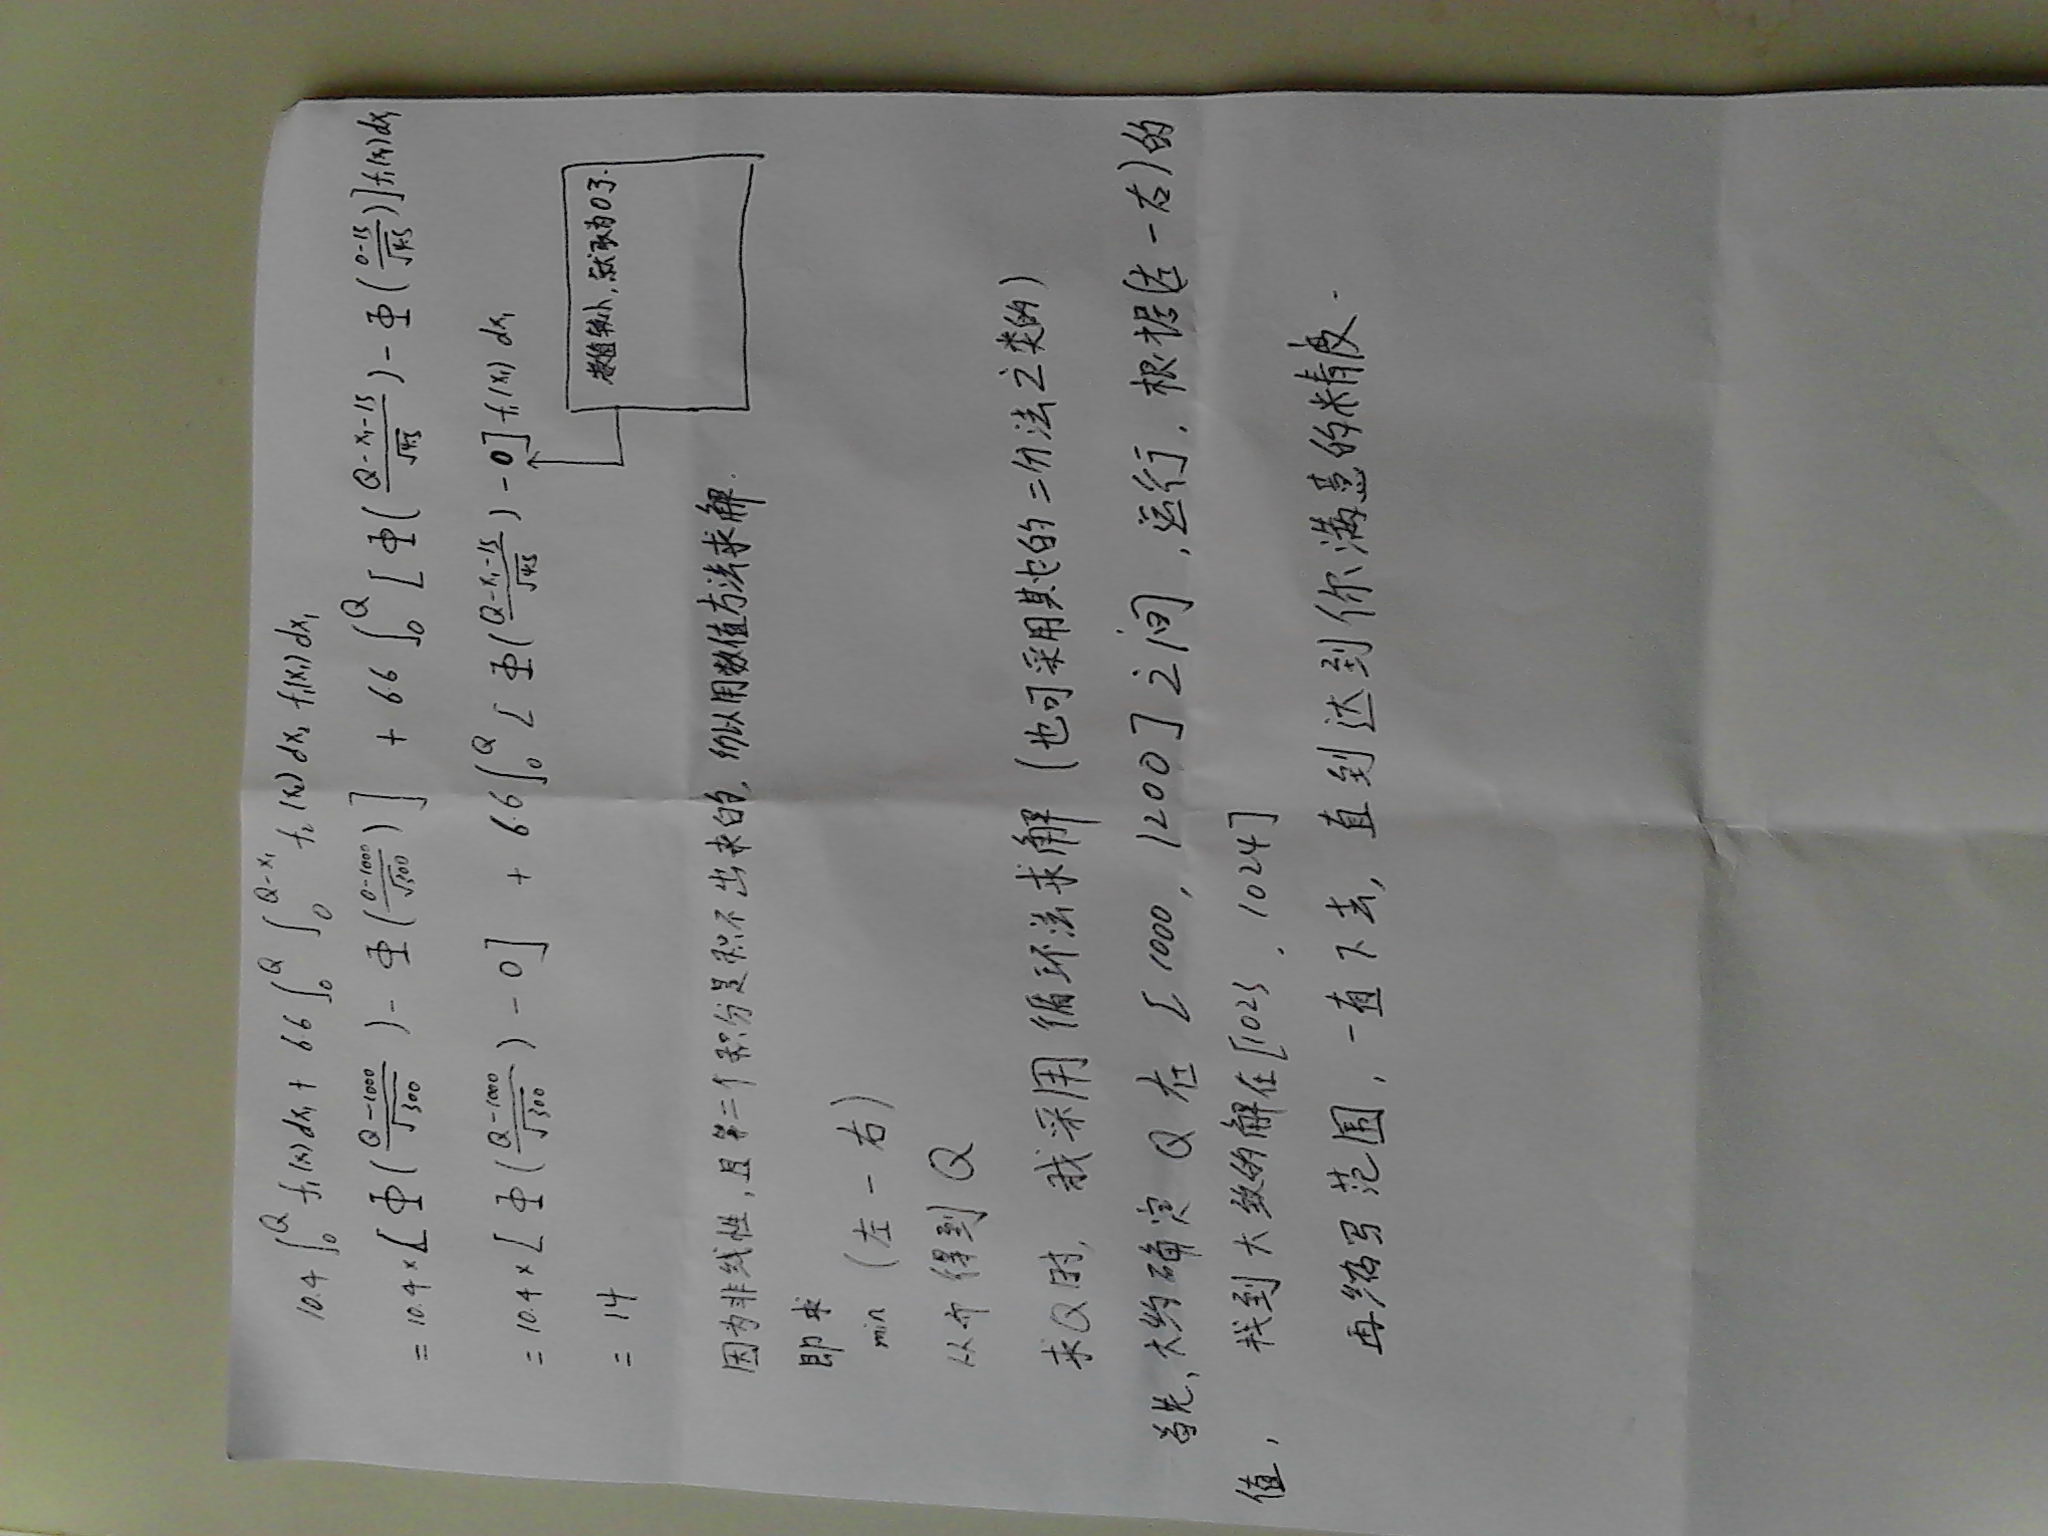 10.4 ∫₀^Q f₁(x₁)dx₁ + 66 ∫₀^Q ∫₀^(Q-x₁) f₂(x₂)dx₂ f₁(x₁)dx₁
= 10.4×[Φ((Q-1000)/√300) - Φ((0-1000)/√300)] + 66 ∫₀^Q [Φ((Q-x₁-15)/√45) - Φ((0-15)/√45)]f₁(x₁)dx₁
= 10.4×[Φ((Q-1000)/√300) - 0] + 6.6 ∫₀^Q [Φ((Q-x₁-15)/√45) - 0]f₁(x₁)dx₁
= 14
数值较小,就取为0了.
因为非线性,且第二个积分是积不出来的,所以用数值方法求解.
即求
min (左-右)
从而得到Q
求Q时,我采用循环法求解(也可采用其他的二分法之类的)
首先,大约确定Q在[1000,1200]之间,运行,根据(左-右)的
值,找到大致的解在[1023,1024]
再缩写范围,一直下去,直到达到你满意的精度.